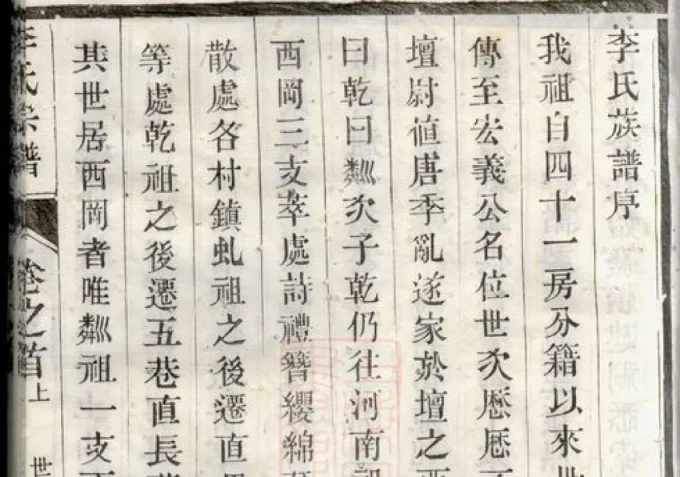 李氏族譜序
我祖自四十一房分籍以來
傳至宏義公名位世次歷歷
壇尉值唐季亂遂家於壇之西
曰乾曰粼次子乾仍往河南
西岡三支萃處詩禮簪纓綿
散處各村鎮虬祖之後遷直
等處乾祖之後遷五巷直長
其世居西岡者唯粼祖一支
李氏宗譜
卷之首
上
世